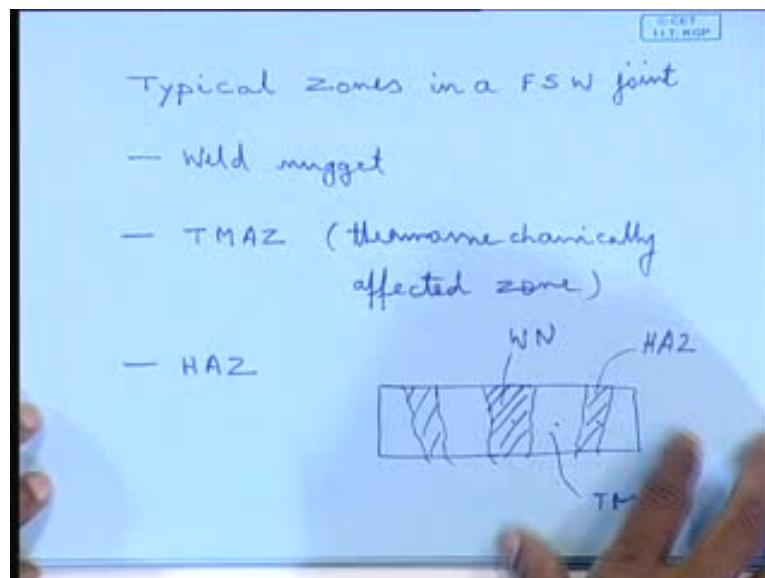 © CET
I.I.T. KGP
Typical zones in a FSW joint
— Weld nugget
— TMAZ (thermomechanically
affected zone)
— HAZ
WN
HAZ
TM